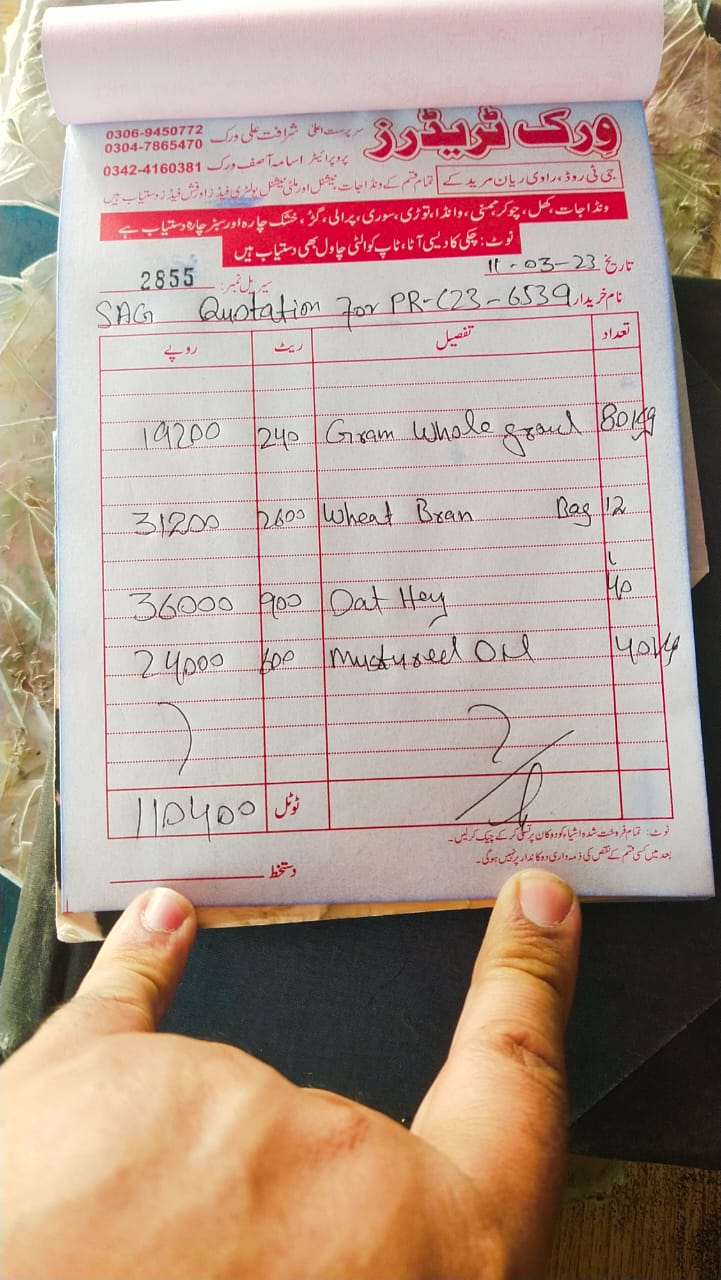 ورک ٹریڈرز
سرپرست اعلیٰ شرافت علی ورک 0306-9450772
0304-7865470
پروپرائیٹر اسامہ آصف ورک 0342-4160381
جی ٹی روڈ، راوی ریان مریدکے
تمام قسم کے ونڈا جات، نیشنل اور ملٹی نیشنل پولٹری فیڈز اور فش فیڈز دستیاب ہیں
ونڈا جات، کھل، چوکر، وانڈا، توڑی، سوری، پرالی، گڑ، خشک چارہ اور سبز چارہ دستیاب ہے
نوٹ: چکی کا دیسی آٹا، ٹاپ کوالٹی چاول بھی دستیاب ہیں
تاریخ 11-03-23
سیریل نمبر: 2855
نام خریدار SAG Quotation for PR-C23-6539
تعداد تفصیل ریٹ روپے
19200 240 Gram Whole 80 kg
31200 2600 Wheat Bran Bag 12
36000 900 Oat Hey 40
24000 600 Mustured Oil 40
ٹوٹل 110400
نوٹ: تمام فروخت شدہ اشیاء کو دوکان پر تسلی کر کے چیک کر لیں۔
بعد میں کسی قسم کے نقص کی ذمہ داری دوکاندار پر نہیں ہوگی۔
دستخط